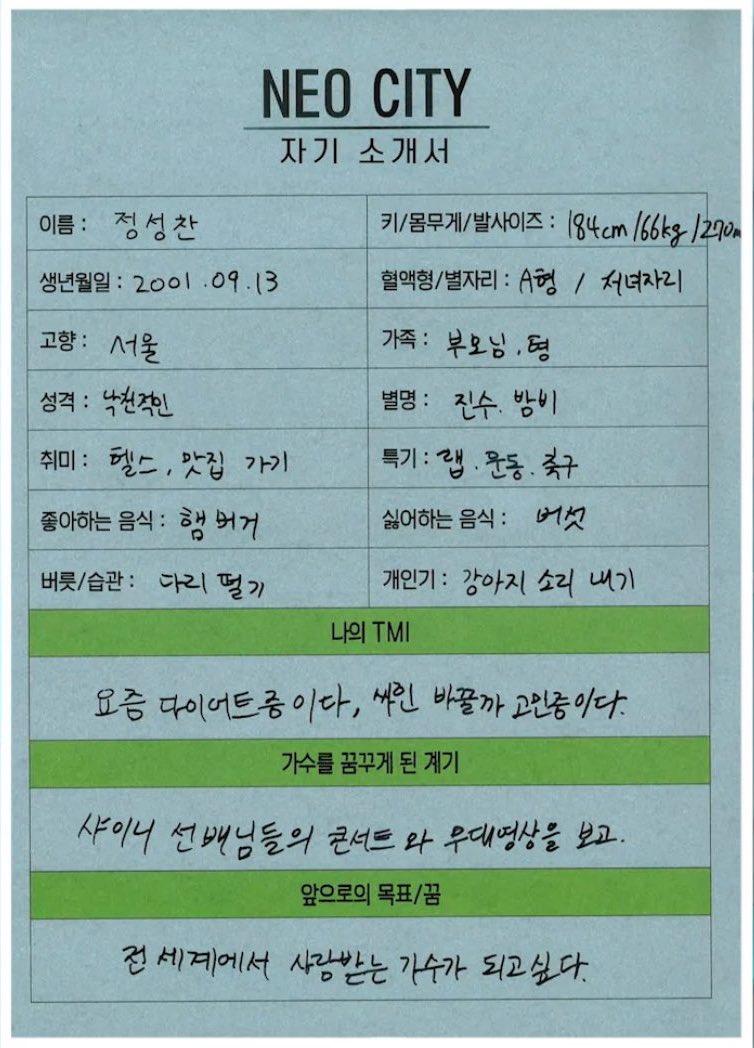 NEO CITY
자기 소개서
이름 : 정성찬
키/몸무게/발사이즈 : 184cm/66kg/270m
생년월일 : 2001.09.13
혈액형/별자리 : A형 / 처녀자리
고향 : 서울
가족 : 부모님, 형
성격 : 낙천적인
별명 : 진수. 밤비
취미 : 헬스, 맛집 가기
특기 : 랩. 운동. 축구
좋아하는 음식 : 햄버거
싫어하는 음식 : 버섯
버릇/습관 : 다리 떨기
개인기 : 강아지 소리 내기
나의 TMI
요즘 다이어트중이다, 싸인 바꿀까 고민중이다.
가수를 꿈꾸게 된 계기
샤이니 선배님들의 콘서트와 무대영상을 보고.
앞으로의 목표/꿈
전 세계에서 사랑받는 가수가 되고싶다.